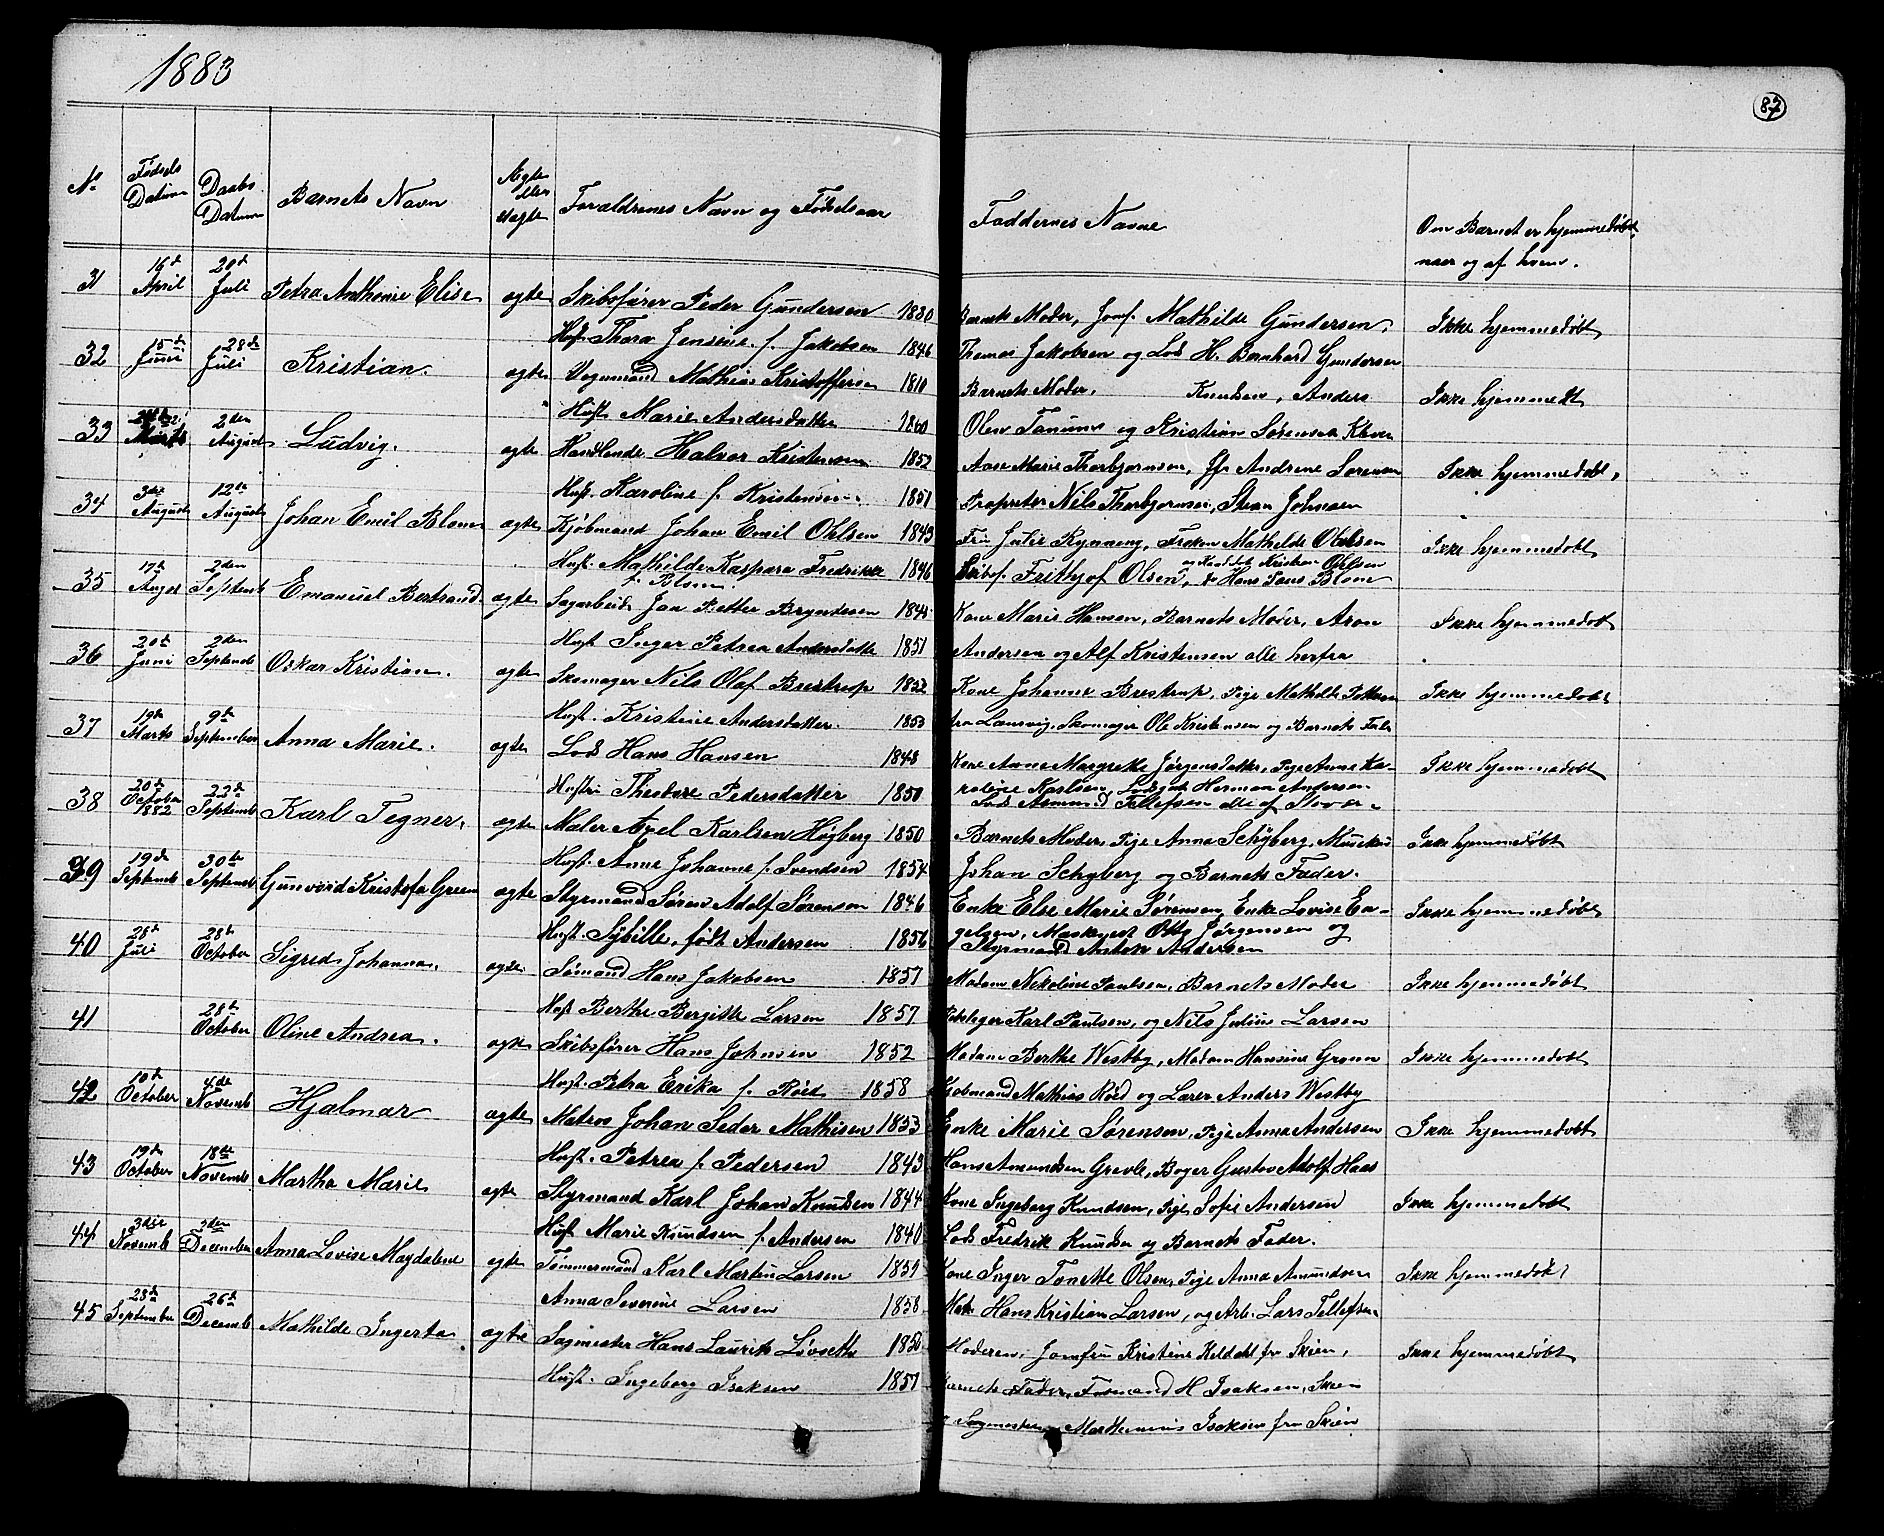 1883
87
No
Fødsels Datum
Daabs Datum
Barnets Navn
Ægte eller Uægte
Forældrenes Navn og Fødselsaar
Faddernes Navne
Om Barnet er hjemmedøbt, naar og af hvem.
31 16de April 20de Juli Petra Anthonie Elise ægte Skibsfører Peder Gundersen 1830 Barnets Moder, Jomf. Mathilde Gundersen, Ikke hjemmedøbt
Hust. Thora Jensine f. Jakobsen 1846 Thomas Jakobsen og Lods H. Bernhard Gundersen
32 15de Juni 28de Juli Kristian. ægte Vognmand Mathias Kristoffersen 1810 Barnets Moder, Knudsen, Anders Ikke hjemmedt
Hust. Marie Andersdatter 1860 Olsen Tanum og Kristian Sørensen
33 Marts 2den August Ludvig. ægte Handlende Halvor Kristensen 1852 Aase Marie Thorbjørnsen, Andrene Sørensen Ikke hjemmedøbt,
Hust. Karoline f. Kristensen 1851 Proprietær Nils Thorbjørnsen, Johnsen
34 3die August 12te August Johan Emil Blom ægte Kjøbmand Johan Emil Ohlsen 1843 Fru Julie Rynning, Frøken Mathilde Ohlsen Ikke hjemmedøbt
Hust. Mathilde Kaspara Fredrikke f. Blom 1846 Skibsf. Frithjof Olsen, og Kristian Ohlsen Hans Blom
35 17de August 2den Septemb Emanuel Bertrand. ægte Sagarbeid. Jan Petter Bryndesen 1845 Kone Marie Hansen, Barnets Moder, Aron Ikke hjemmedøbt
Hust. Inger Petrea Andersdatte 1851 Andersen og Alf Kristensen alle herfra
36 20de Juni 2den Septemb Oskar Kristian. ægte Skomager Nils Olaf Brestrup 1852 Kone Johanne Brestrup, Pige Mathilde Ikke hjemmedøbt
Hust. Kristine Andersdatter 1853 fra Laurvig, Skomager Ole Kristensen og Barnets Fader
37 19de Marts 9de September Anna Marie. ægte Lods Hans Hansen 1848 Kone Anne Margrethe Jørgensdatter, Pige Anne Ka- Ikke hjemmedøbt
Hustru Theodore Pedersdatter 1850 roline Karlsen, Herman Andersen Lods Asmund Tellefsen alle af
38 20de October 1882 23de Septemb Karl Tegner. ægte Maler Axel Karlsen Høgberg 1850 Barnets Moder, Pige Anna Schyberg, Ikke hjemmedøbt
Hust. Anne Johanne f. Svendsen 1854 Johan Schyberg og Barnets Fader.
39 19de Septemb 30te Septemb Gunvord Kristofa Green ægte Styrmand Søren Adolf Sørensen 1846 Enke Else Marie Sørensen, Enke Lovise En- Ikke hjemmedøbt
Hust. Sybille, født Andersen 1856 gelsen, Otto Jørgensen og Styrmand Anton Andersen
40 28de Juli 28de October Sigred Johanna. ægte Sømand Hans Jakobsen 1857 Madam Nikoline Paulsen, Barnets Moder Ikke hjemmedøbt
Hust Berthe Bergitte Larsen 1857 Karl Paulsen, og Nils Julius Larsen
41 28de October Oline Andrea. ægte Skibsfører Hans Johnsen 1852 Madam Berthe Westby, Madam Hansine Grønn Ikke hjemmedøbt
Hust. Petra Erika f. Røed 1858 Kjøbmand Mathias Røed og Lærer Anders Westby
42 10de October 4de Novemb Hjalmar ægte Matros Johan Peder Mathisen 1853 Enke Marie Sørensen, Pige Anna Andersen Ikke hjemmedøbt
Hust. Petrea f. Pedersen 1843 Hans Amundsen Grevle, Gustav Adolf Haas
43 19de October 18de Novemb Martha Marie ægte Styrmand Karl Johan Knudsen 1844 Kone Ingeborg Knudsen, Pige Sofie Andersen Ikke hjemmedøbt
Hust Marie Knudsen f. Andersen 1840 Lods Fredrik Knudsen og Barnets Fader.
44 3die Novemb 2den December Anna Lovise Magdalene ægte Tømmermand Karl Martin Larsen 1859 Kone Inger Tonette Olsen, Pige Anna Amundsen Ikke hjemmedøbt
Anna Severine Larsen 1858 Hans Kristian Larsen, og Arb. Lars Tellefsen
45 28de September 26de Decemb Mathilde Ingerta ægte Sagmester Hans Laurits Løvseth 1850 Moderen, Jomfru Kristine Keldahl fra Skien, Ikke hjemmedøbt
Hust. Ingeborg Isaksen 1851 Barnets Fader, Formand H Isaksen, Skien
og Sagmester Isaksen fra Skien